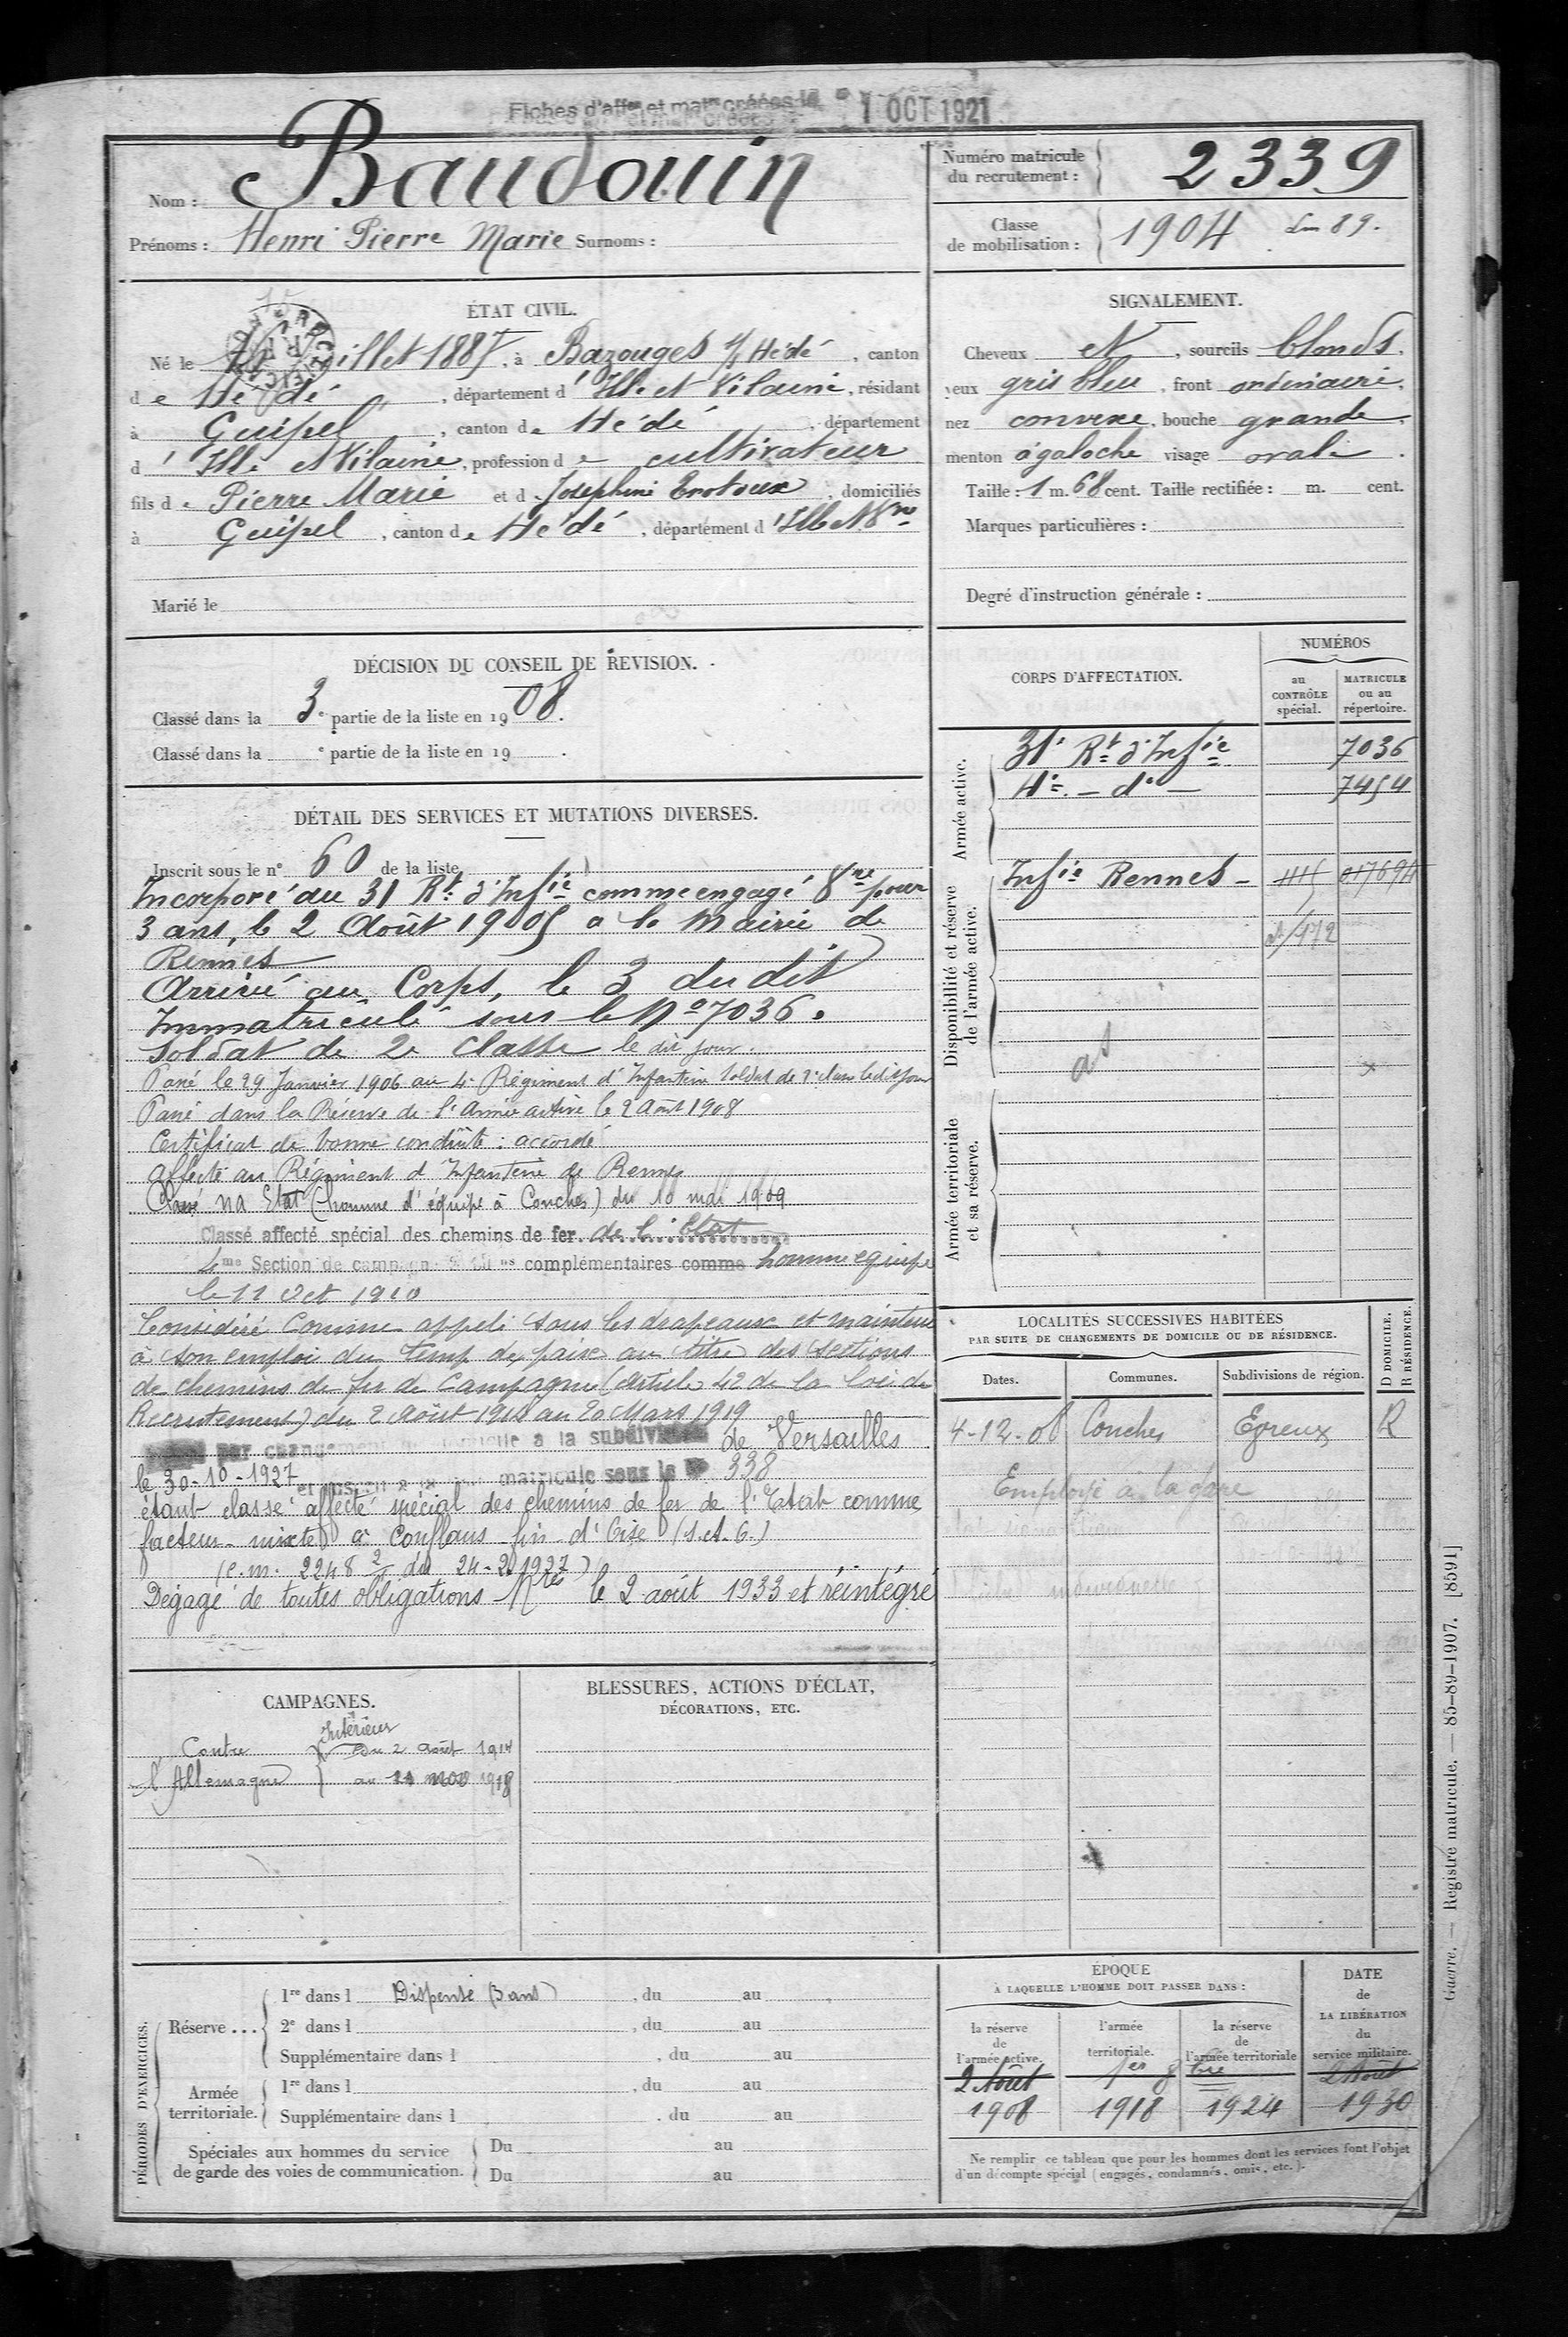 Fiches d'aff^on et mat^le créées le 1 OCT 1921
Nom : Baudouin
Prénoms : Henri Pierre Marie Surnoms :
Numéro matricule du recrutement : 2339
Classe de mobilisation : 1904
ÉTAT CIVIL.
Né le juillet 1887, à Bazouges s/s Hédé, canton
de Hédé, département d'Ille et Vilaine, résidant
à Guipel, canton de Hédé, département
d'Ille et Vilaine, profession de cultivateur
fils de Pierre Marie et d Joséphine, domiciliés
à Guipel, canton de Hédé, département d'Ille et V^ne
Marié le
SIGNALEMENT.
Cheveux et, sourcils blonds,
yeux gris bleu, front ordinaire,
nez convexe, bouche grande,
menton à galoche visage ovale.
Taille : 1 m. 68 cent. Taille rectifiée : m. cent.
Marques particulières :
Degré d'instruction générale :
DÉCISION DU CONSEIL DE REVISION.
Classé dans la 3^e partie de la liste en 1908.
Classé dans la ^e partie de la liste en 19 .
DÉTAIL DES SERVICES ET MUTATIONS DIVERSES.
Inscrit sous le n° 60 de la liste
Incorporé au 31 R^t d'Inf^ie comme engagé V^re pour
3 ans, le 2 Août 1905 a la mairie de
Rennes
Arrivé au Corps, le 3 du dit
Immatriculé sous le N° 7036.
Soldat de 2e classe le dit jour.
Passé le 29 Janvier 1906 au 4e Régiment d'Infanterie Soldat de 2e classe ledit jour
Passé dans la Réserve de l'Armée active le 2 Août 1908
Certificat de bonne conduite : accordé
Affecté au Régiment d'Infanterie de Rennes
Classé NA Etat (homme d'équipe à Conches) du 10 mai 1909
Classé affecté spécial des chemins de fer de l'Etat
4^me Section de campagne complémentaires comme homme equipe
le 11 Oct 1910
Considéré comme appelé sous les drapeaux et maintenu
à son emploi du temp de paix au titre des sections
de chemins de fer de Campagne (article 42 de la loi de
Recrutement) du 2 Août 1914 au 20 Mars 1919
par changement de domicile à la subdivision de Versailles
le 30-10-1927 et inscrit matricule sous le N° 338
étant classé affecté spécial des chemins de fer de l'Etat comme
facteur-mixte à Conflans fin-d'Oise (S.et.O.)
(C.m. 2248 2/1 du 24-2-1927)
Dégagé de toutes obligations M^res le 2 août 1933 et réintégré
CORPS D'AFFECTATION.
NUMÉROS
au CONTRÔLE spécial.
MATRICULE ou au répertoire.
Armée active.
31^e R^t d'Inf^ie 7036
4^e - d° - 7454
Disponibilité et réserve de l'armée active.
Inf^ie Rennes - 1115 017694
472
as
Armée territoriale et sa réserve.
LOCALITÉS SUCCESSIVES HABITÉES
PAR SUITE DE CHANGEMENTS DE DOMICILE OU DE RÉSIDENCE.
Dates. Communes. Subdivisions de région. D DOMICILE. R RÉSIDENCE.
4-12-08 Conches Evreux R
Employé à la gare
CAMPAGNES.
Contre l'Allemagne
Intérieur
du 2 août 1914
au 11 nov 1918
BLESSURES, ACTIONS D'ÉCLAT,
DÉCORATIONS, ETC.
PÉRIODES D'EXERCICES.
Réserve ...
1^re dans l Dispensé (3 ans), du au
2^e dans l , du au
Supplémentaire dans l , du au
Armée territoriale.
1^re dans l , du au
Supplémentaire dans l . du au
Spéciales aux hommes du service
de garde des voies de communication.
Du au
Du au
ÉPOQUE
À LAQUELLE L'HOMME DOIT PASSER DANS :
la réserve de l'armée active.
l'armée territoriale.
la réserve de l'armée territoriale
DATE de LA LIBÉRATION du service militaire.
2 Août 1^er 8^bre 2 Août
1908 1918 1924 1930
Ne remplir ce tableau que pour les hommes dont les services font l'objet
d'un décompte spécial (engagés, condamnés, omis, etc.).
Guerre. — Registre matricule. — 85-89-1907. [8591]